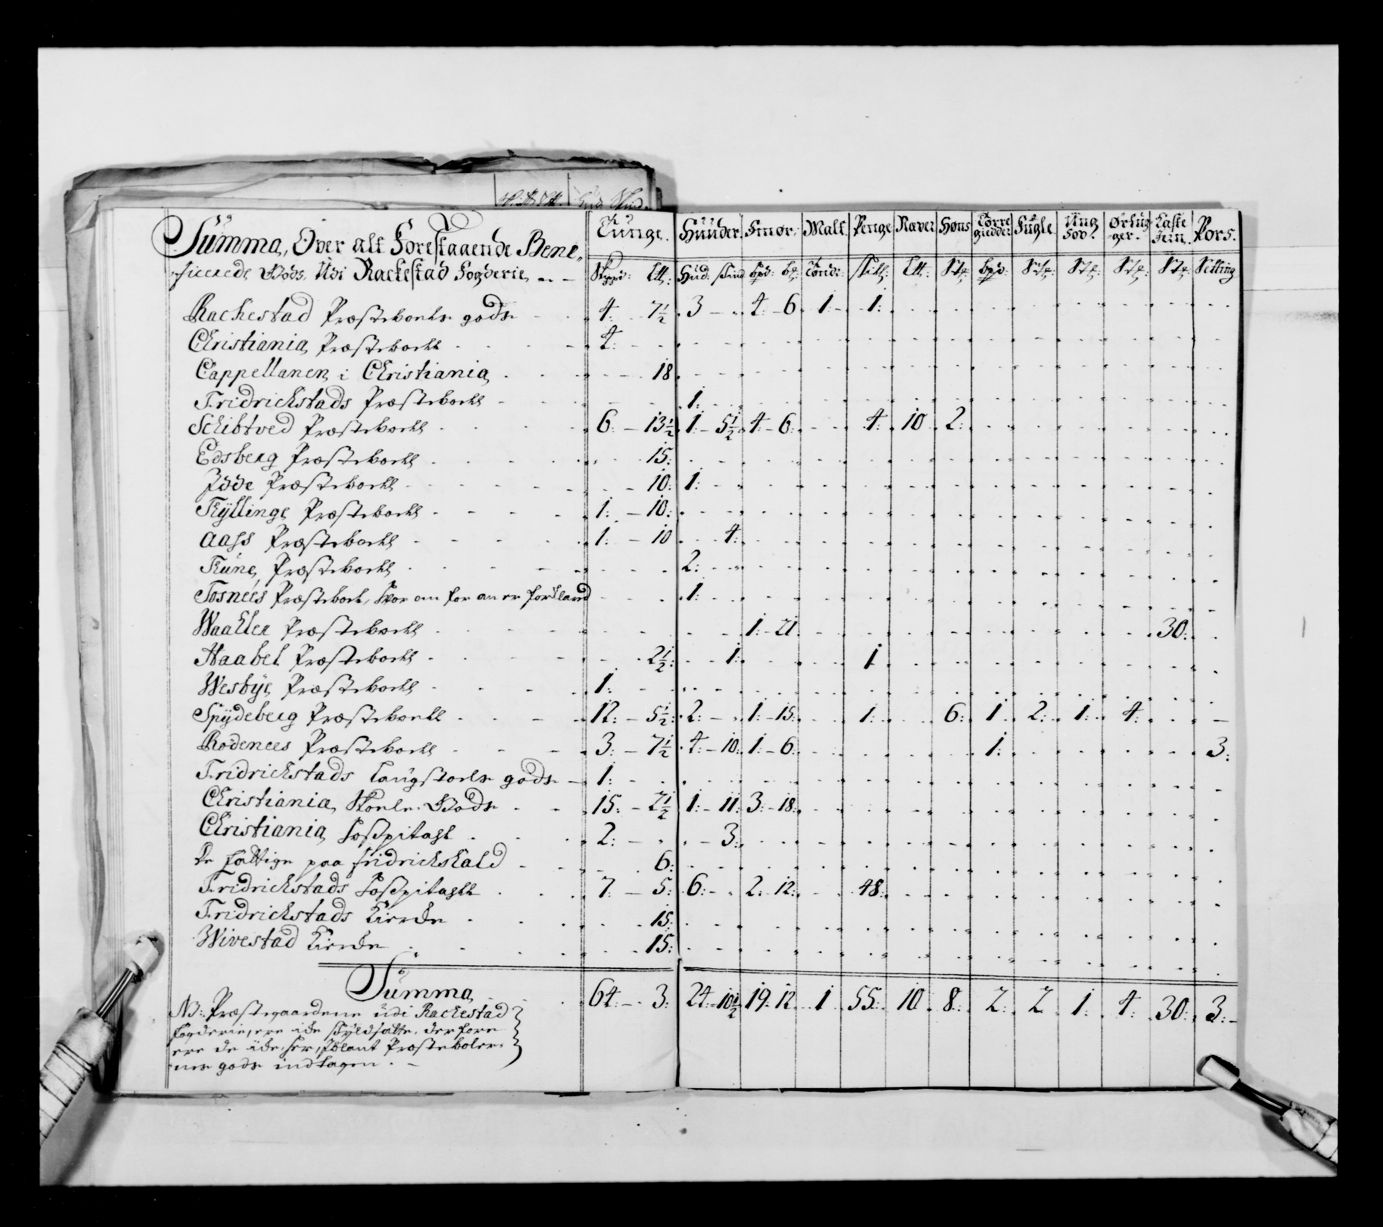 Summa, Over alt Forestaaende Bene-
ficerede Gods, Udi Rackestad Fogderie
Tunge. Huuder. Smør. Malt Penge Haver Høns Tørre giedder Fugle Ørtug- ger. Kaste Jern Pors.
Skpd: Lt: Hud: skind bpd: tønde: skill: Lt: Stk: bpd: Stk: Stk: Stk: Stk: Setting
Rackestad Præstebords gods 4: 7½ 3 2: 6 1: 1:
Christiania Præstebord 4:
Cappellanen i Christiania 18
Fridrickstads Præstebord 1:
Schibtved Præstebord 6: 13½ 1 5½ 4 6: 4: 10 2:
Edsberg Præstebord 15:
Idde Præstebord 10: 1:
Kyllinge Præstebord 1: 10:
Aass Præstebord 1: 10 4:
Præstebord 2:
Præstebord, 1:
Waaler Præstebord 1: 21 30:
Haabel Præstebord 2½: 1: 1
Wesbye Præstebord 1:
Spydeberg Præstebord 12: 5½: 2: 1: 15: 1: 6: 1: 2: 1: 4:
Rodenees Præstebord 3: 7½ 4 10 1 6: 1: 3:
Fridrickstads Laugstoels gods 1:
Christiania Skoele Gods 15: 2½ 1: 11: 3: 18:
Christiania Hosspitahl 2: 3:
De fattige paa fridrickshald 6:
Fridrickstads Hosspitahl 7 5: 6: 2: 12: 48:
Fridrickstads Kirke 15:
Wivestad Kirke 15:
Summa 64: 3: 24: 10½ 19: 12 1 55: 10 8: 2: 2 1: 4: 30: 3:
NB: Præstegaardene udi Rackestad
Fogderie, ere iche skyldsatte, derfore
ere de iche her, iblant Præsteboler-
nes gods indtagen.